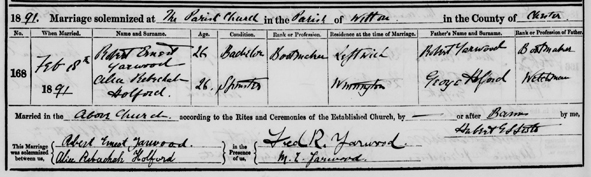 1891. Marriage solemnized at The Parish Church in the Parish of Witton in the County of Chester
No. When Married. Name and Surname. Age. Condition. Rank or Profession. Residence at the time of Marriage. Father's Name and Surname. Rank or Profession of Father.
168 Feb 8th 1891 Robert Ernest Yarwood 26 Bachelor Boatmaker Leftwich Robert Yarwood Boatmaker
Alice Rebechah Holford. 26. Spinster Winnington George Holford Watchman
Married in the Above Church according to the Rites and Ceremonies of the Established Church, by — or after Banns by me,
This Marriage was solemnized between us, Robert Ernest Yarwood. Alice Rebachah Holford in the Presence of us, Fred R. Yarwood M. E. Yarwood.